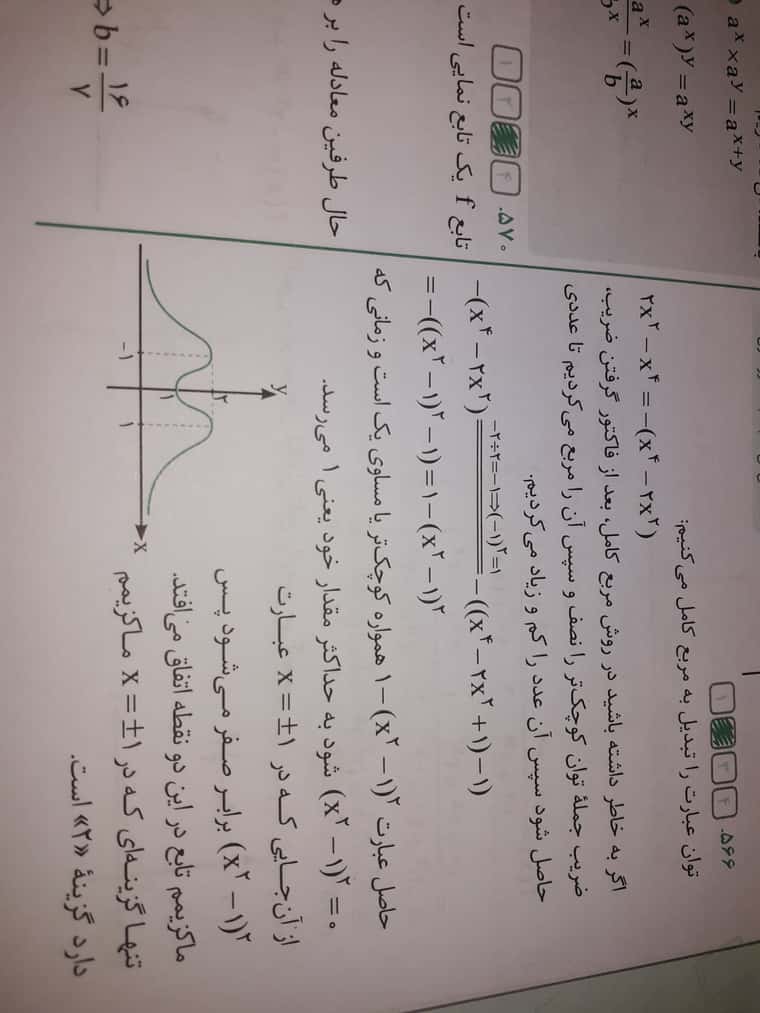 ۵۶۶.
۱ ۳ ۴
توان عبارت را تبدیل به مربع کامل می‌کنیم:
۲x² − x⁴ = −(x⁴ − ۲x²)
اگر به خاطر داشته باشید در روش مربع کامل، بعد از فاکتور گرفتن ضریب،
ضریب جملهٔ توان کوچک‌تر را نصف و سپس آن را مربع می‌کردیم تا عددی
حاصل شود سپس آن عدد را کم و زیاد می‌کردیم.
−۲÷۲=−۱⇒(−۱)²=۱
−(x⁴ − ۲x²) = −((x⁴ − ۲x² + ۱) − ۱)
= −((x² − ۱)² − ۱) = ۱ − (x² − ۱)²
حاصل عبارت ۱ − (x² − ۱)² همواره کوچک‌تر یا مساوی یک است و زمانی که
(x² − ۱)² = ۰ شود به حداکثر مقدار خود یعنی ۱ می‌رسد.
از آن‌جایی که در x = ±۱ عبارت
(x² − ۱)² برابر صفر می‌شود پس
ماکزیمم تابع در این دو نقطه اتفاق می‌افتد.
تنها گزینه‌ای که در x = ±۱ ماکزیمم
دارد گزینهٔ «۲» است.
y
۲
۱
−۱
۱
x
aˣ × aʸ = aˣ⁺ʸ
(aˣ)ʸ = aˣʸ
aˣ/bˣ = (a/b)ˣ
۵۷۰.
۱ ۲ ۴
تابع f یک تابع نمایی است
حال طرفین معادله را بر
⇒ b = ۱۶/۷